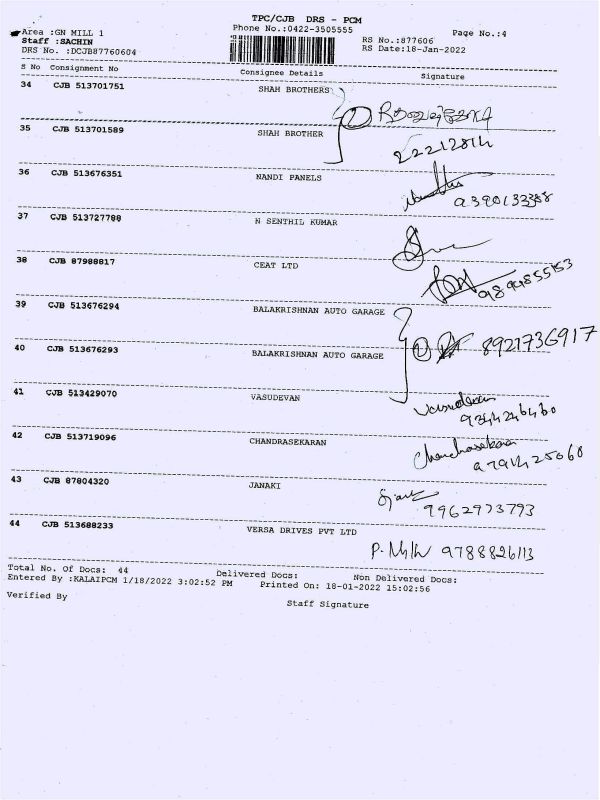 TPC/CJB DRS - PCM
Phone No.:0422-3505555
Page No.:4
Area :GN MILL 1
Staff :SACHIN
DRS No. :DCJB87760604
RS No.:877606
RS Date:18-Jan-2022
S No Consignment No Consignee Details Signature
34 CJB 513701751 SHAH BROTHERS
35 CJB 513701589 SHAH BROTHER
36 CJB 513676351 NANDI PANELS
37 CJB 513727788 N SENTHIL KUMAR
38 CJB 87988817 CEAT LTD
39 CJB 513676294 BALAKRISHNAN AUTO GARAGE
8921736917
40 CJB 513676293 BALAKRISHNAN AUTO GARAGE
41 CJB 513429070 VASUDEVAN Vasudevan
9344246460
42 CJB 513719096 CHANDRASEKARAN Chandrasekaran
43 CJB 87804320 JANAKI
9962973793
44 CJB 513688233 VERSA DRIVES PVT LTD
9788826113
Total No. Of Docs: 44 Delivered Docs: Non Delivered Docs:
Entered By :KALAIPCM 1/18/2022 3:02:52 PM Printed On: 18-01-2022 15:02:56
Verified By Staff Signature